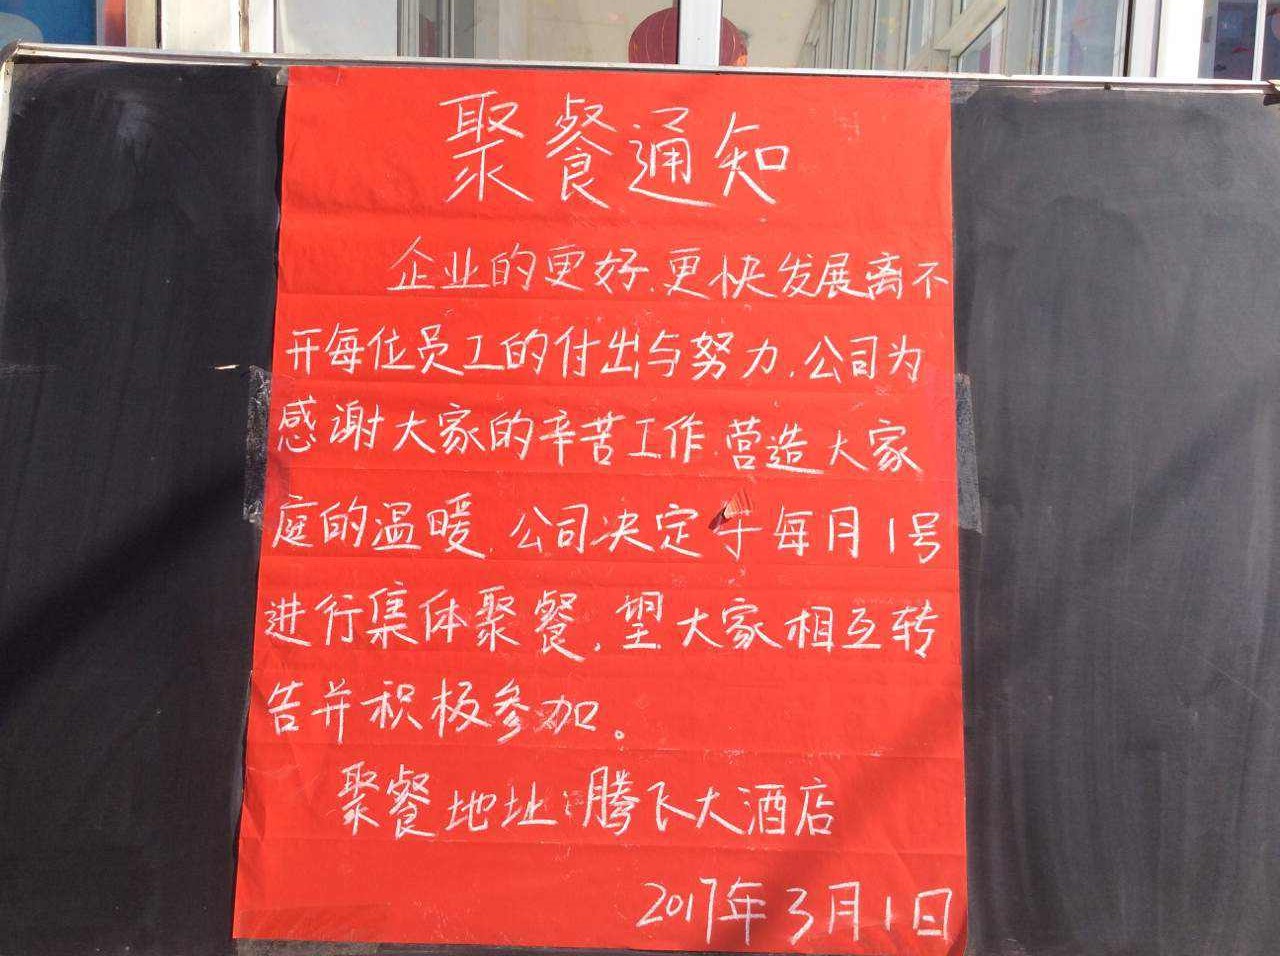 聚餐通知
企业的更好.更快发展离不
开每位员工的付出与努力.公司为
感谢大家的辛苦工作.营造大家
庭的温暖.公司决定于每月1号
进行集体聚餐,望大家相互转
告并积极参加。
聚餐地址:腾飞大酒店
2017年3月1日